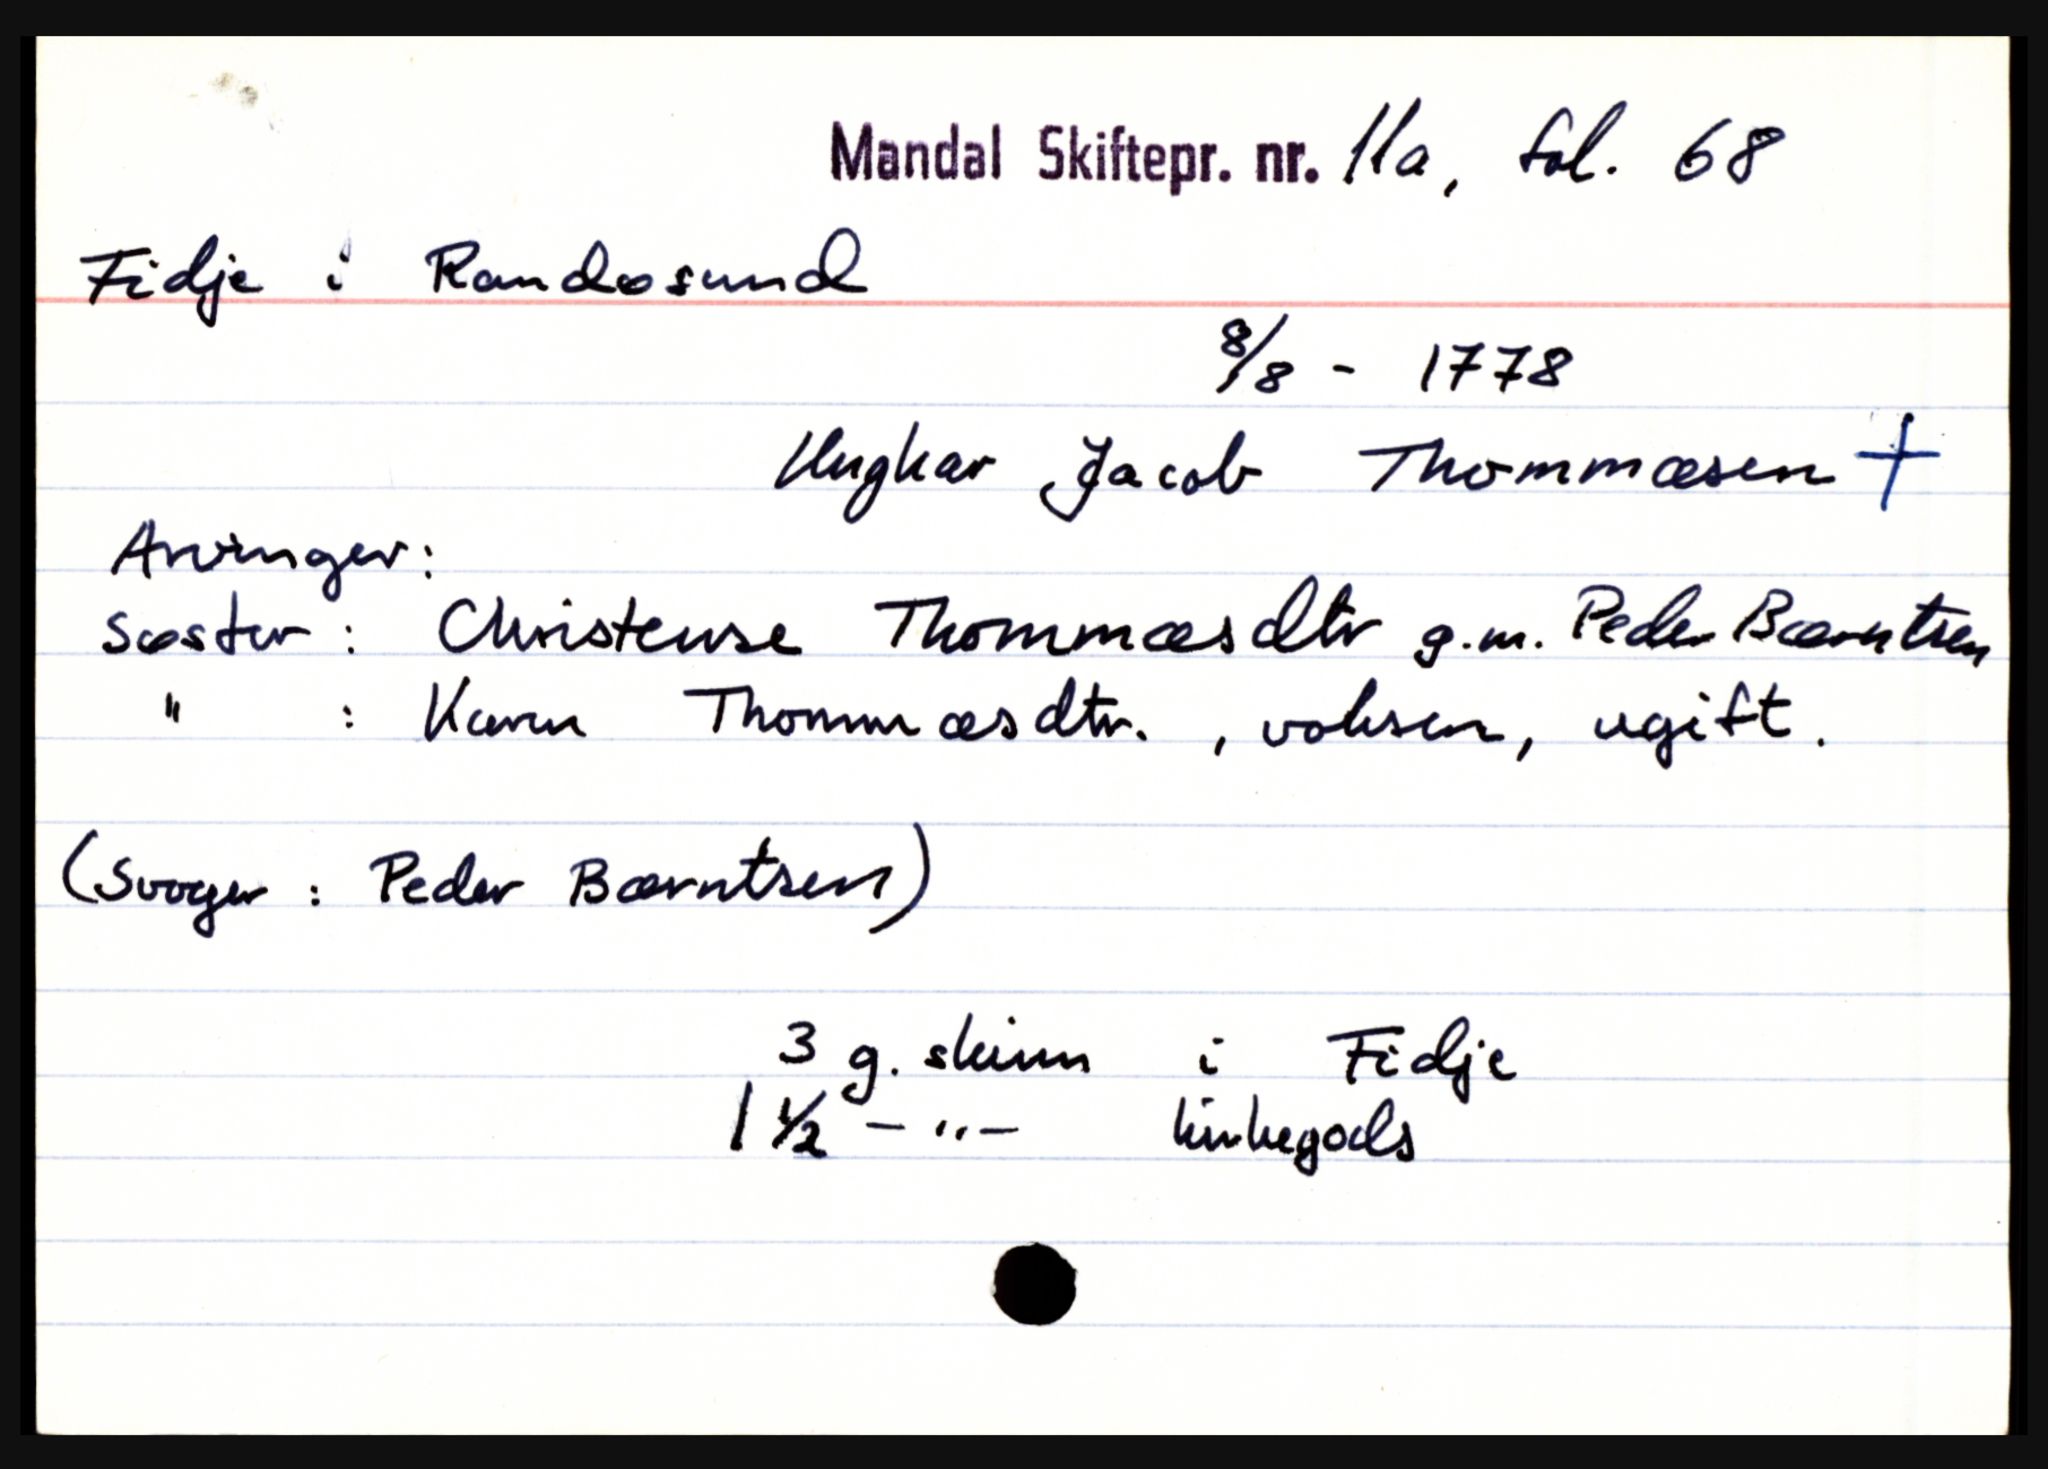 Mandal Skiftepr. nr. 11a, fol. 68
Fidje i Randøsund
8/8 - 1778
Ungkar Jacob Thommæsen +
Arvinger:
Søster: Christense Thommæsdtr g.m. Peder Bærntsen
" : Karen Thommæsdtr., voksen, ugift.
(Svoger: Peder Bærntsen)
3 g. skinn i Fidje
1 1/2 - " - kirkegods